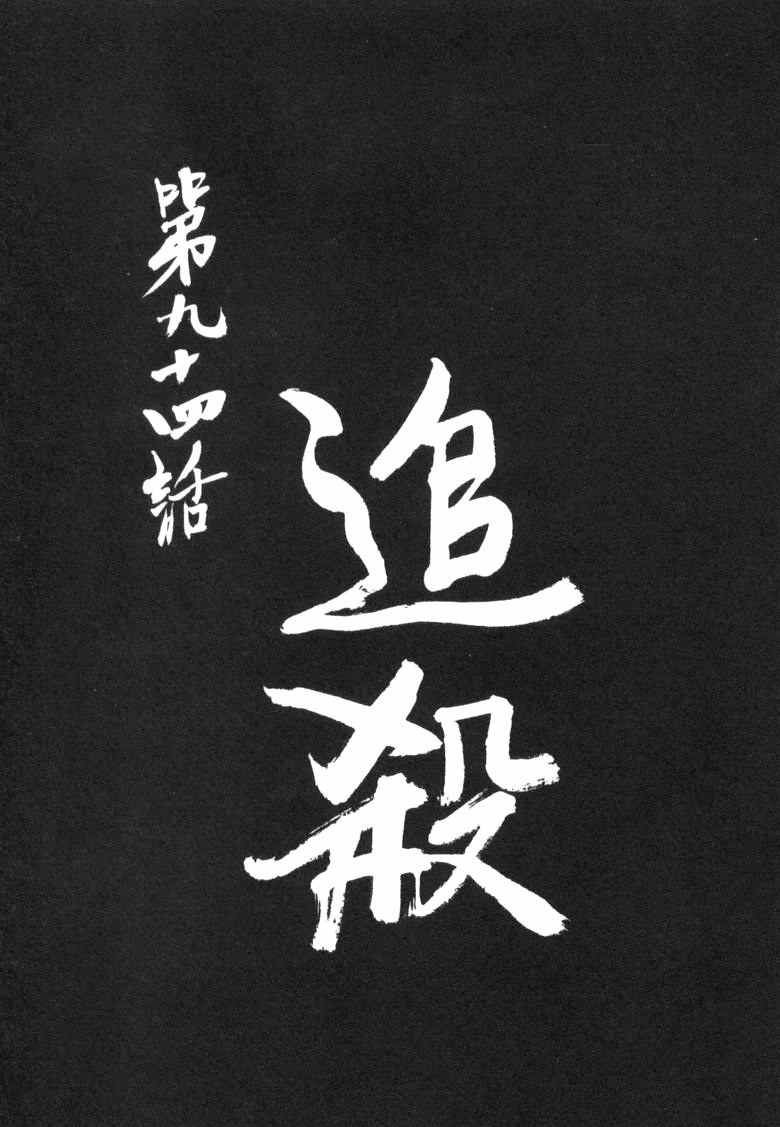 第九十四話
追殺